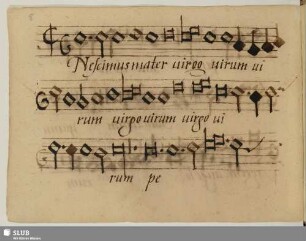 Nescimus mater uirgo uirum ui
rum uirgo uirum uirgo ui
rum pe
SLUB